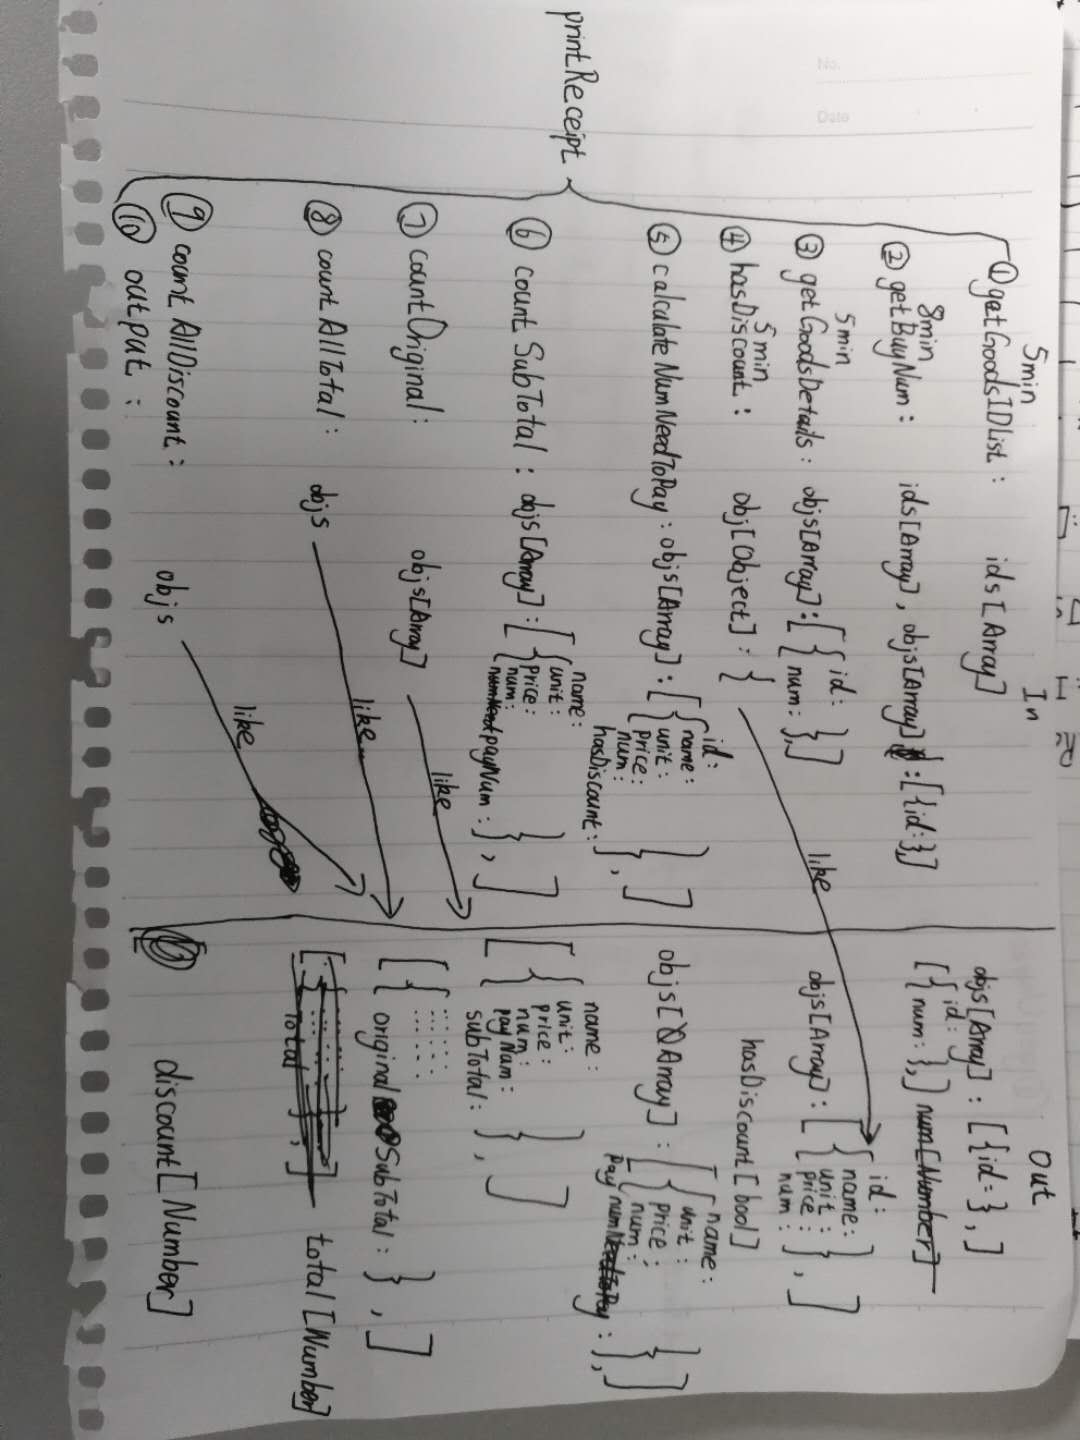 No.
Date
In
Out
printReceipt
5min
① getGoodsIDList : ids [Array] objs[Array] : [{id: }, ]
8min
② getBuyNum : ids[Array] , objs[Array] : [{id: },] [{id:
num: },]
5min
③ getGoodsDetails : objs[Array] : [{id:
num: },] objs[Array] : [{id:
name:
unit:
price:
num: }, ]
5min
④ hasDiscount : obj[Object] : { like hasDiscount [bool]
⑤ calculateNumNeedToPay : objs[Array] : [{id:
name:
unit:
price:
num:
hasDiscount : }, ] objs[Array] : [{name:
unit:
price:
num:
pay num : }, ]
⑥ countSubTotal : objs[Array] : [{name:
unit:
price:
num:
payNum : }, ] [{name:
unit:
price:
num:
payNum:
subTotal: }, ]
⑦ countOriginal : objs[Array] like [{......
......
original SubTotal : }, ]
⑧ countAllTotal : objs like total [Number]
⑨ countAllDiscount : objs like discount [Number]
⑩ output :